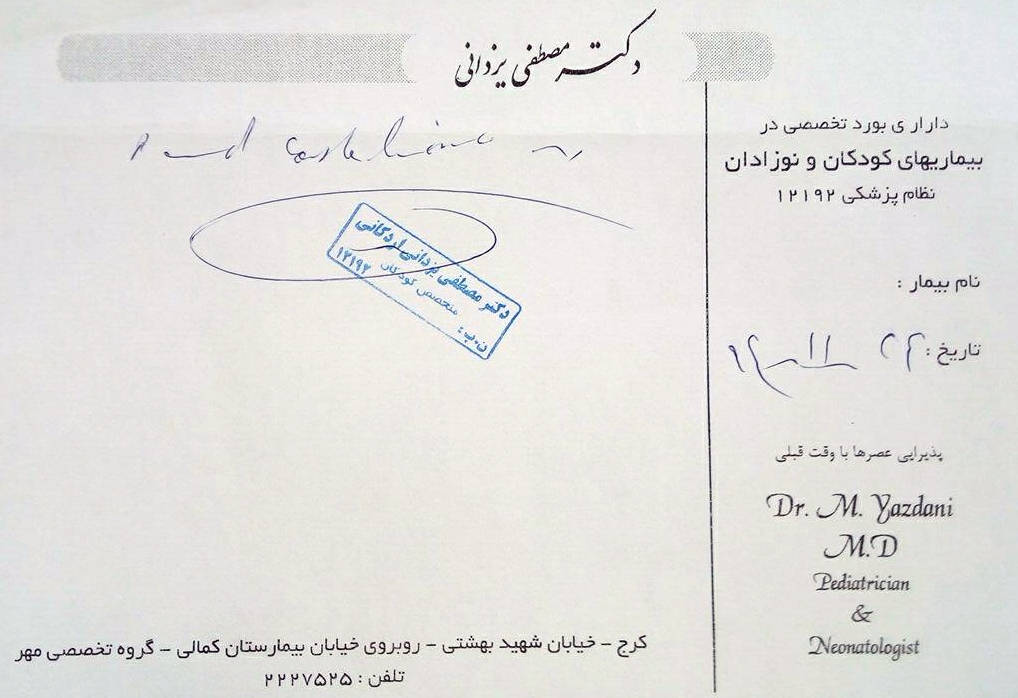 دکتر مصطفی یزدانی
دارای بورد تخصصی در
بیماریهای کودکان و نوزادان
نظام پزشکی ۱۲۱۹۲
دکتر مصطفی یزدانی اردکانی
متخصص کودکان
ن.پ: ۱۲۱۹۲
نام بیمار :
تاریخ :
پذیرایی عصرها با وقت قبلی
Dr. M. Yazdani
M.D
Pediatrician
&
Neonatologist
کرج – خیابان شهید بهشتی – روبروی خیابان بیمارستان کمالی – گروه تخصصی مهر
تلفن : ۲۲۲۷۵۲۵